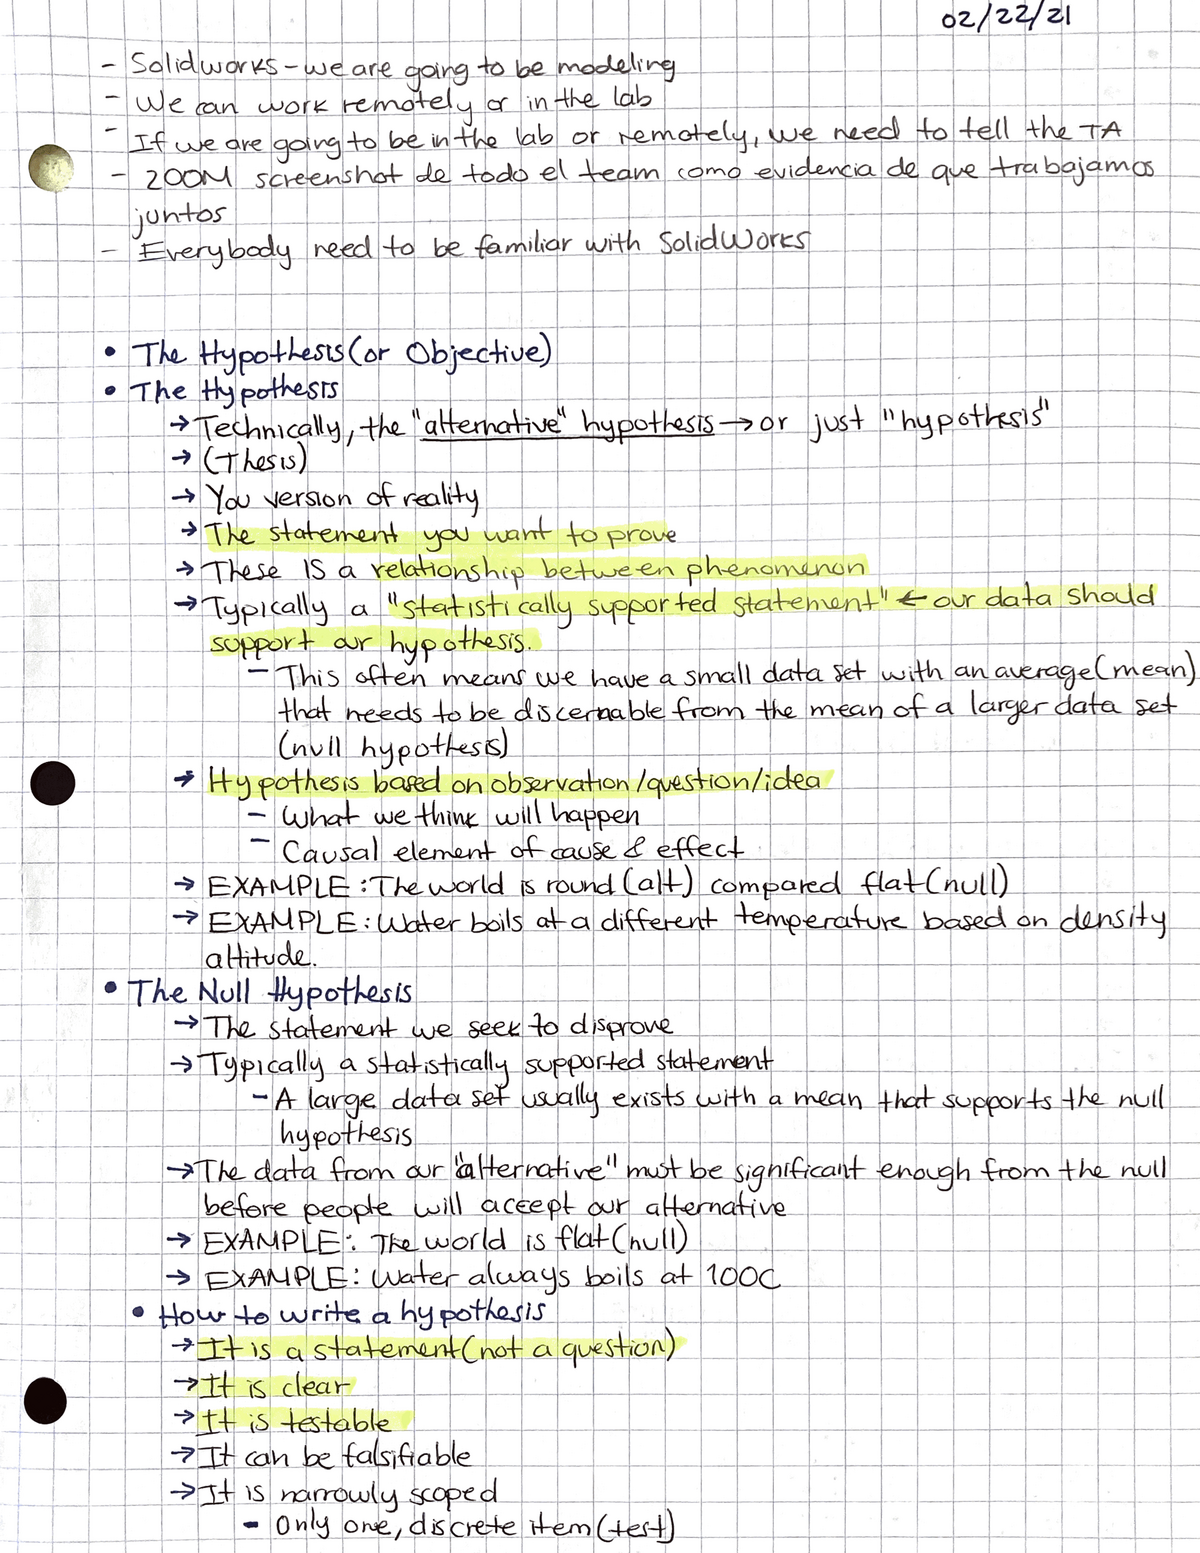 02/22/21
- Solidworks - we are going to be modeling
- We can work remotely or in the lab
- If we are going to be in the lab or remotely, we need to tell the TA
- ZOOM screenshot de todo el team como evidencia de que trabajamos
juntos
- Everybody need to be familiar with SolidWorks
• The Hypothesis (or Objective)
• The Hypothesis
→ Technically, the "alternative" hypothesis → or just "hypothesis"
→ (Thesis)
→ You version of reality
→ The statement you want to prove
→ These IS a relationship between phenomenon
→ Typically a "statistically supported statement" ← our data should
support our hypothesis.
- This often means we have a small data set with an average (mean)
that needs to be discernable from the mean of a larger data set
(null hypothesis)
→ Hypothesis based on observation/question/idea
- What we think will happen
- Causal element of cause & effect
→ EXAMPLE: The world is round (alt) compared flat (null)
→ EXAMPLE: Water boils at a different temperature based on density
altitude.
• The Null Hypothesis
→ The statement we seek to disprove
→ Typically a statistically supported statement
- A large data set usually exists with a mean that supports the null
hypothesis
→ The data from our "alternative" must be significant enough from the null
before people will accept our alternative
→ EXAMPLE: The world is flat (null)
→ EXAMPLE: Water always boils at 100C
• How to write a hypothesis
→ It is a statement (not a question)
→ It is clear
→ It is testable
→ It can be falsifiable
→ It is narrowly scoped
- Only one, discrete item (test)